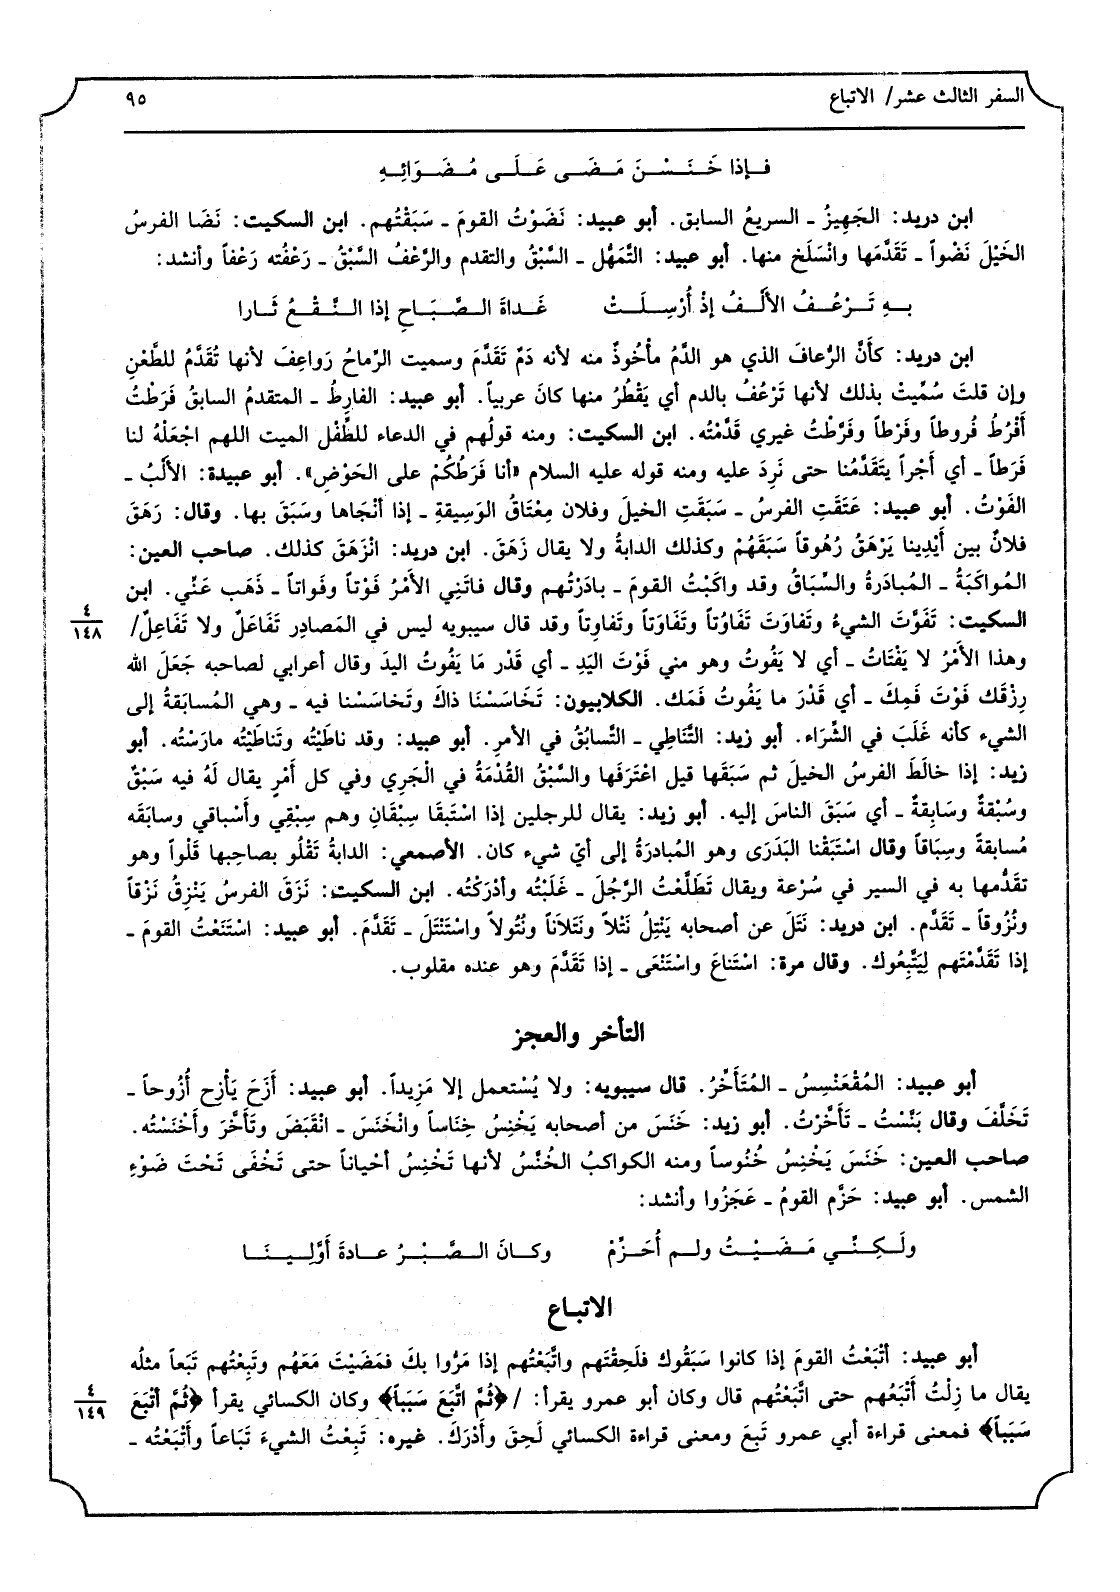 السفر الثالث عشر/ الاتباع
٩٥
فإذا خَنَسْنَ مَضَى عَلَى مُضَوَائِهِ
ابن دريد: الجَهِيزُ ـ السريعُ السابق. أبو عبيد: نَضَوْتُ القومَ ـ سَبَقْتُهم. ابن السكيت: نَضَا الفرسُ
الخَيْلَ نَضْواً ـ تَقَدَّمَها وانْسَلَخ منها. أبو عبيد: التَّمَهُّل ـ السَّبْقُ والتقدم والرَّعْفُ السَّبْقُ ـ رَعَفْته رَعْفاً وأنشد:
بهِ تَرْعُفُ الألْفُ إذْ أُرْسِلَتْ    غَداةَ الصَّبَاحِ إذا النَّقْعُ ثَارا
ابن دريد: كأَنَّ الرُّعافَ الذي هو الدَّمُ مأْخُوذٌ منه لأنه دَمٌ تَقَدَّمَ وسميت الرِّماحُ رَواعِفَ لأنها تُقَدَّمُ للطَّعْنِ
وإن قلتَ سُمِّيتْ بذلك لأنها تَرْعُفُ بالدم أي يَقْطُرُ منها كانَ عربياً. أبو عبيد: الفارِطُ ـ المتقدمُ السابقُ فَرَطْتُ
أَفْرُطُ فُروطاً وفَرْطاً وفَرَّطْتُ غيري قَدَّمْته. ابن السكيت: ومنه قولُهم في الدعاء للطِّفْل الميت اللهم اجعَلْهُ لنا
فَرَطاً ـ أي أَجْراً يتَقَدَّمُنا حتى نَرِدَ عليه ومنه قوله عليه السلام «أنا فَرَطُكُمْ على الحَوْضِ». أبو عبيدة: الألْبُ ـ
الفَوْتُ. أبو عبيد: عَتَقَتِ الفرسُ ـ سَبَقَتِ الخيلَ وفلان مِعْتاقُ الوَسِيقةِ ـ إذا أنْجَاها وسَبَقَ بها. وقال: رَهَقَ
فلانٌ بين أَيْدِينا يَرْهَقُ رُهُوقاً سَبَقَهُمْ وكذلك الدابةُ ولا يقال زَهَق. ابن دريد: انْزَهَقَ كذلك. صاحب العين:
المُواكَبَةُ ـ المُبادَرةُ والسِّبَاقُ وقد واكَبْتُ القومَ ـ بادَرْتُهم وقال فاتَنِي الأمْرُ فَوْتاً وفَواتاً ـ ذَهَب عَنِّي. ابن
السكيت: تَفَوَّتَ الشيءُ وتَفْاوَتَ تَفَاوُتاً وتَفَاوَتاً وتَفاوِتاً وقد قال سيبويه ليس في المَصادِر تَفَاعَلٌ ولا تَفَاعِلٌ/
وهذا الأمْرُ لا يَفْتَاتُ ـ أي لا يَفُوتُ وهو مني فَوْتَ اليَدِ ـ أي قَدْر مَا يَفُوتُ اليدَ وقال أعرابي لصاحبه جَعَلَ الله
رِزْقَك فَوْتَ فَمِكَ ـ أي قَدْرَ ما يَفُوتُ فَمَك. الكلابيون: تَخَاسَسْنَا ذاكَ وتَخاسَسْنا فيه ـ وهي المُسابَقةُ إلى
الشيء كأنه غَلَبَ في الشِّرَاء. أبو زيد: التَّنَاطِي ـ التَّسابُقُ في الأمرِ. أبو عبيد: وقد ناطَيْتُه وتَناطَيْتُه مارَسْتُه. أبو
زيد: إذا خالَطَ الفرسُ الخيلَ ثم سَبَقَها قيل اعْتَرَفَها والسَّبْقُ القُدْمَةُ في الْجَرِي وفي كل أَمْرٍ يقال لَهُ فيه سَبْقٌ
وسُبْقةٌ وسَابِقةٌ ـ أي سَبَقَ الناسَ إليه. أبو زيد: يقال للرجلين إذا اسْتَبقَا سِبْقَانِ وهم سِبْقِي وأَسْباقي وسابَقَه
مُسابقةً وسِبَاقاً وقال اسْتَبَقْنا البَدَرَى وهو المُبادرَةُ إلى أيّ شيء كان. الأصمعي: الدابةُ تَقْلُو بصاحِبها قَلْواً وهو
تقَدُّمها به في السير في سُرْعة ويقال تَطَلَّعْتُ الرَّجُلَ ـ غَلَبْتُه وأدْرَكْتُه. ابن السكيت: نَزَقَ الفرسُ يَنْزِقُ نَزْقاً
ونُزُوقاً ـ تَقَدَّم. ابن دريد: نَتَلَ عن أصحابه يَنْتِلُ نَتْلاً ونَتَلاَناً ونُتُولاً واسْتَنْتَلَ ـ تَقَدَّمَ. أبو عبيد: اسْتَنَعْتُ القومَ ـ
إذا تَقَدَّمْتَهم لِيَتَّبِعُوك. وقال مرة: اسْتَناعَ واسْتَنْعَى ـ إذا تَقَدَّمَ وهو عنده مقلوب.
٤
١٤٨
التأخر والعجز
أبو عبيد: المُقْعَنْسِسُ ـ المُتَأَخِّرُ. قال سيبويه: ولا يُسْتعمل إلا مَزِيداً. أبو عبيد: أَزَحَ يَأْزِح أُزُوحاً ـ
تَخَلَّفَ وقال بَنَّسْتُ ـ تَأَخَّرْتُ. أبو زيد: خَنَسَ من أصحابه يَخْنِسُ خِنَاساً وانْخَنَسَ ـ انْقَبَضَ وتَأَخَّرَ وأَخْنَسْتُه.
صاحب العين: خَنَسَ يَخْنِسُ خُنُوساً ومنه الكواكبُ الخُنَّسُ لأنها تَخْنِسُ أحْياناً حتى تَخْفَى تَحْتَ ضَوْءِ
الشمس. أبو عبيد: حَزَّم القومُ ـ عَجَزُوا وأنشد:
ولَكِنِّي مَضَيْتُ ولم أُحَزِّمْ    وكانَ الصَّبْرُ عادةَ أَوَّلِينَا
الاتباع
أبو عبيد: أتْبَعْتُ القومَ إذا كانوا سَبَقُوك فلَحِقْتَهم واتَّبَعْتُهم إذا مَرُّوا بكَ فمَضَيْتَ مَعَهُم وتَبِعْتُهم تَبَعاً مثلُه
يقال ما زِلْتُ أَتْبَعُهم حتى اتَّبَعْتُهم قال وكان أبو عمرو يقرأ: / ﴿ثُمَّ اتَّبَعَ سَبَباً﴾ وكان الكسائي يقرأ ﴿ثُمَّ أتْبَعَ
سَبَباً﴾ فمعنى قراءة أبي عمرو تَبِعَ ومعنى قراءة الكسائي لَحِقَ وأَدْرَكَ. غيره: تَبِعْتُ الشيءَ تَبَاعاً وأَتْبَعْتُه ـ
٤
١٤٩